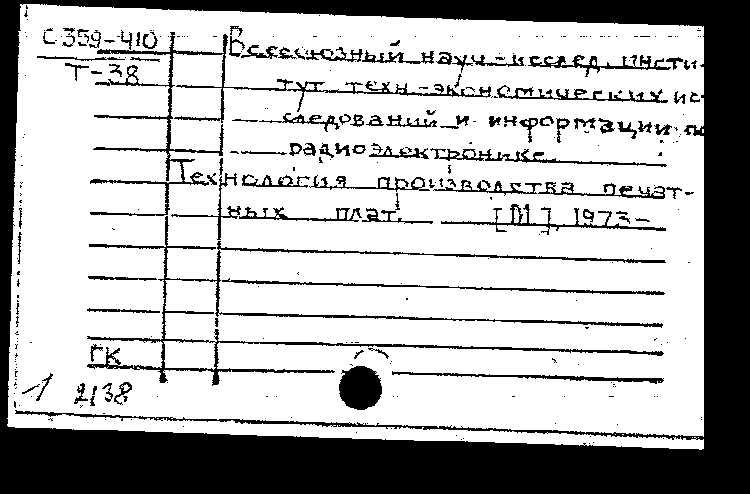 С359-410
Т-38
Всесоюзный науч.-исслед. инсти-
тут техн.-экономических ис-
следований и информации по
радиоэлектронике.
Технология производства печат-
ных плат. [М], 1973-
ГК
1 2138